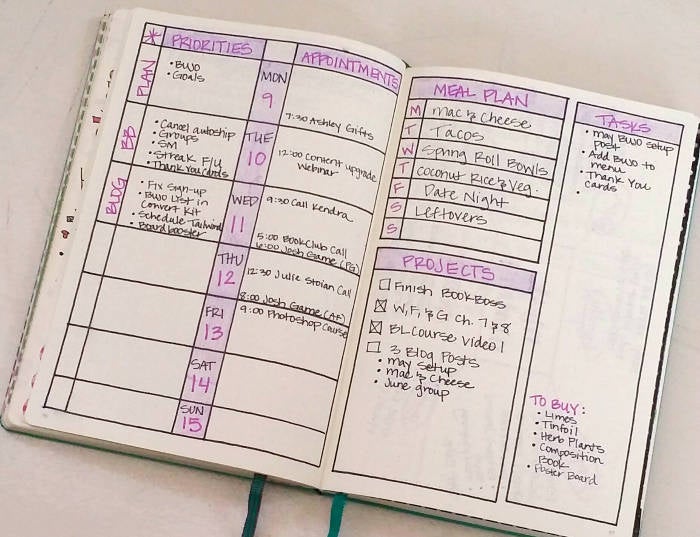 * PRIORITIES
APPOINTMENTS
PLAN
• BUJO
• Goals
BB
• Cancel autoship
• Groups
• SM
• Streak FU
• Thank you cards
BLOG
• Fix sign-up
• BUJO List in
Convert Kit
• Schedule Tailwind
• Boardbooster
MON
9
7:30 Ashley Gifts
TUE
10
12:00 Content upgrade
Webinar
WED
11
9:30 Call Kendra
5:00 Book Club Call
6:00 Josh Game (PG)
THU
12
12:30 Julie Stoian Call
8:00 Josh Game (AF)
FRI
13
9:00 Photoshop Course
SAT
14
SUN
15
MEAL PLAN
M Mac & Cheese
T Tacos
W Spring Roll Bowls
T Coconut Rice & Veg.
F Date Night
S Leftovers
S
PROJECTS
Finish BookBoss
W, F, & G Ch. 7 & 8
BL Course Video 1
3 Blog Posts
• may setup
• mac & cheese
• June group
TASKS
• may BUJO setup
post
• Add BUJO to
menu
• Thank you
cards
TO BUY:
• Limes
• Tinfoil
• Herb Plants
• Composition
Book
• Poster Board